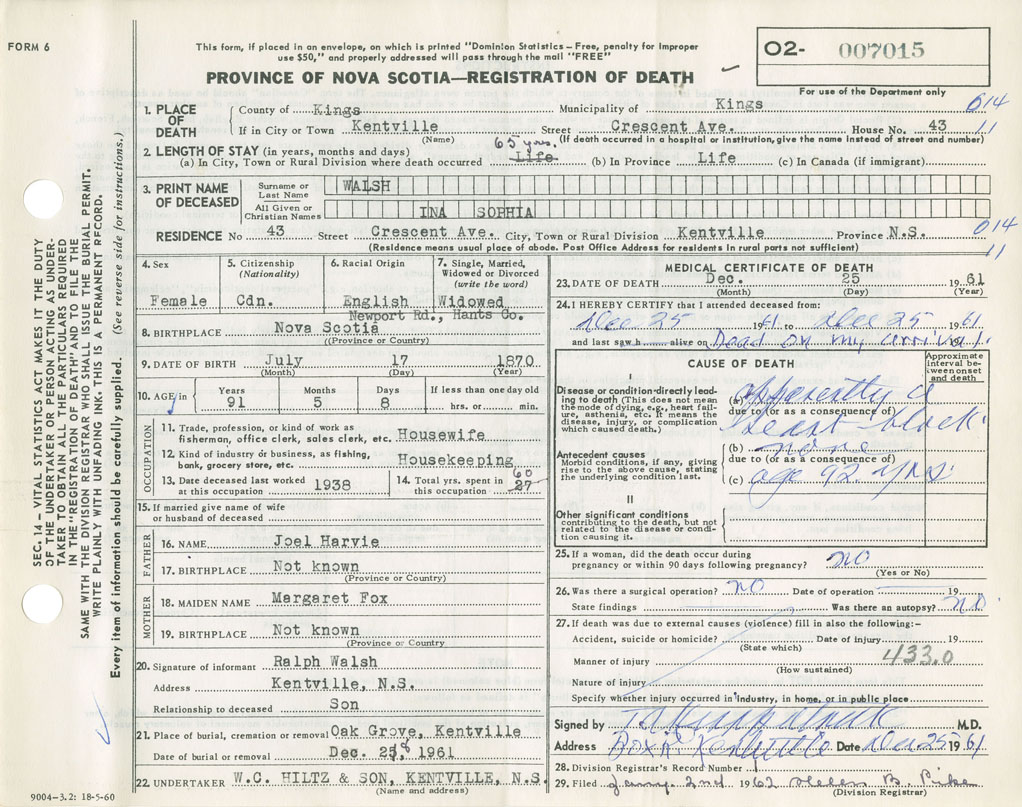 FORM 6
This form, if placed in an envelope, on which is printed "Dominion Statistics – Free, penalty for improper
use $50," and properly addressed will pass through the mail "FREE"
O2- 007015
PROVINCE OF NOVA SCOTIA—REGISTRATION OF DEATH
For use of the Department only
1. PLACE OF DEATH
County of Kings Municipality of Kings 014
If in City or Town Kentville Street Crescent Ave. House No. 43 11
(Name) (If death occurred in a hospital or institution, give the name instead of street and number)
2. LENGTH OF STAY (in years, months and days) 65 yrs.
(a) In City, Town or Rural Division where death occurred Life (b) In Province Life (c) In Canada (if immigrant)
3. PRINT NAME OF DECEASED
Surname or Last Name WALSH
All Given or Christian Names INA SOPHIA
RESIDENCE No 43 Street Crescent Ave. City, Town or Rural Division Kentville Province N.S. 014
(Residence means usual place of abode. Post Office Address for residents in rural parts not sufficient) 11
4. Sex
Female
5. Citizenship (Nationality)
Cdn.
6. Racial Origin
English
7. Single, Married, Widowed or Divorced (write the word)
Widowed
Newport Rd., Hants Co.
8. BIRTHPLACE Nova Scotia
((Province or Country)
9. DATE OF BIRTH July 17 1870
(Month) (Day) (Year)
10. AGE in Years Months Days If less than one day old
91 5 8 hrs. or min.
OCCUPATION
11. Trade, profession, or kind of work as
fisherman, office clerk, sales clerk, etc. Housewife
12. Kind of industry or business, as fishing,
bank, grocery store, etc. Housekeeping
13. Date deceased last worked
at this occupation 1938
14. Total yrs. spent in
this occupation 27 60
15. If married give name of wife
or husband of deceased
FATHER
16. NAME Joel Harvie
17. BIRTHPLACE Not known
(Province or Country)
MOTHER
18. MAIDEN NAME Margaret Fox
19. BIRTHPLACE Not known
(Province or Country)
20. Signature of informant Ralph Walsh
Address Kentville, N.S.
Relationship to deceased Son
21. Place of burial, cremation or removal Oak Grove, Kentville
Date of burial or removal Dec. 28, 1961
22. UNDERTAKER W.C. HILTZ & SON, KENTVILLE, N.S.
(Name and address)
MEDICAL CERTIFICATE OF DEATH
23. DATE OF DEATH Dec. 25 1961
(Month) (Day) (Year)
24. I HEREBY CERTIFY that I attended deceased from:
Dec 25 1961 to Dec 25 1961
and last saw h alive on Dead on my arrival 1961
CAUSE OF DEATH
Approximate interval between onset and death
I
Disease or condition directly leading to death (This does not mean the mode of dying, e.g., heart failure, asthenia, etc. It means the disease, injury, or complication which caused death.)
(a) apparently a
due to (or as a consequence of)
heart-block
Antecedent causes
Morbid conditions, if any, giving rise to the above cause, stating the underlying condition last.
(b) none
due to (or as a consequence of)
(c) age 92 yrs
II
Other significant conditions
contributing to the death, but not related to the disease or condition causing it.
25. If a woman, did the death occur during
pregnancy or within 90 days following pregnancy? no
(Yes or No)
26. Was there a surgical operation? no Date of operation 19
State findings Was there an autopsy? no
27. If death was due to external causes (violence) fill in also the following:-
Accident, suicide or homicide? Date of injury 19
(State which) 433.0
Manner of injury
(How sustained)
Nature of injury
Specify whether injury occurred in industry, in home, or in public place
Signed by M.D.
Address Box Kentville Date Dec 25 1961
28. Division Registrar's Record Number
29. Filed Jany. 2nd 1962 Helen B. Pike
(Division Registrar)
SEC. 14 – VITAL STATISTICS ACT MAKES IT THE DUTY
OF THE UNDERTAKER OR PERSON ACTING AS UNDER-
TAKER TO OBTAIN ALL THE PARTICULARS REQUIRED
IN THE "REGISTRATION OF DEATH" AND TO FILE THE
SAME WITH THE DIVISION REGISTRAR WHO SHALL ISSUE THE BURIAL PERMIT.
WRITE PLAINLY WITH UNFADING INK. THIS IS A PERMANENT RECORD.
Every item of information should be carefully supplied. (See reverse side for instructions.)
9004–3.2: 18-5-60